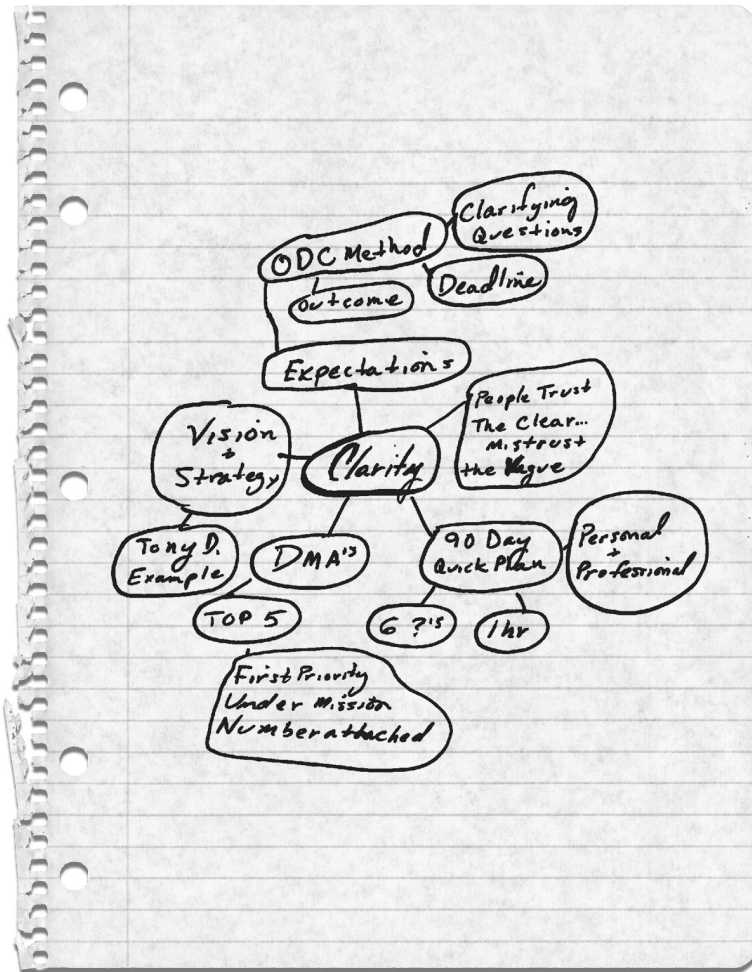 Clarifying
Questions
ODC Method
Deadline
Outcome
Expectations
People Trust
The Clear...
Mistrust
the Vague
Vision
+
Strategy
Clarity
Tony D.
Example
DMA's
90 Day
Quick Plan
Personal
+
Professional
TOP 5
6 ?'s
1hr
First Priority
Under Mission
Number attached